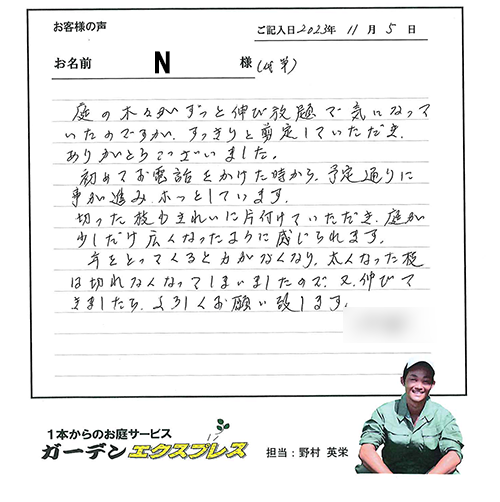 お客様の声
ご記入日 2023年 11月 5日
お名前 N 様
庭の木々がずっと伸び放題で気になって
いたのですが、すっきりと剪定していただき、
ありがとうございました。
初めてお電話をかけた時から、予定通りに
事が進み、ホッとしています。
切った枝もきれいに片付けていただき、庭が
少しだけ広くなったように感じられます。
年をとってくると力がなくなり、太くなった枝
は切れなくなってしまいましたので、又、伸びて
きましたら、よろしくお願い致します。
1本からのお庭サービス
ガーデンエクスプレス
担当：野村 英栄